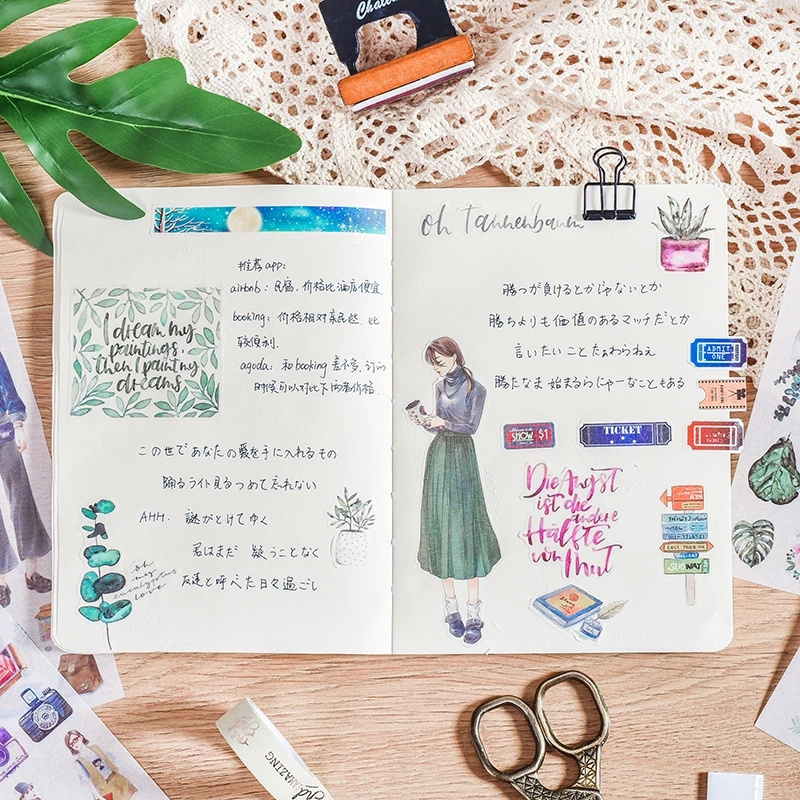 oh Tannenbaum
推荐app:
airbnb: 民宿,价格比酒店便宜.
booking: 价格相对亲民些、比
较便利.
agoda: 和booking差不多,订
时候可以对比下两者价格.
I dream my
paintings,
then I paint my
dreams
この世であなたの愛を手に入れるもの
踊るライト見るつめて忘れない
AHH. 謎がとけてゆく
君はまだ 疑うことなく
友達と呼べた日々過ごし
oh
my
eucalyptus
love
勝つが負けるとかじゃないとか
勝ちよりも価値のあるマッチだとか
言いたいこと
勝たなま 始まるらにゃーなこともある
ADMIT
ONE
SHOW $1
TICKET
Die Angst
ist die
andere
Hälfte
von Mut
SUBWAY
AMAZING